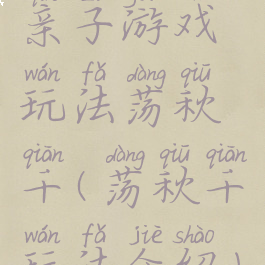 亲子游戏
wán fǎ dàng qiū
玩法荡秋
qiān dàng qiū qiān
千(荡秋千
wán fǎ jiē shào
玩法介绍)